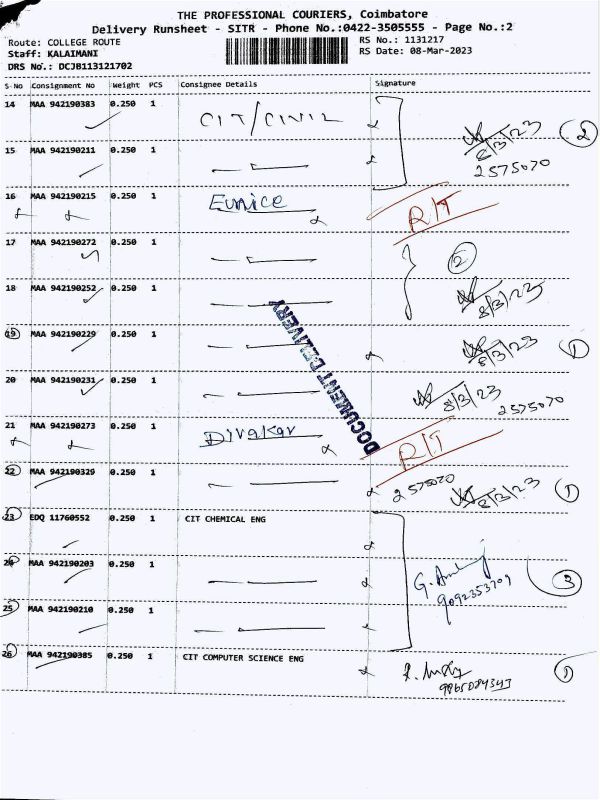 THE PROFESSIONAL COURIERS, Coimbatore
Delivery Runsheet - SITR - Phone No.:0422-3505555 - Page No.:2
Route: COLLEGE ROUTE
RS No.: 1131217
Staff: KALAIMANI
RS Date: 08-Mar-2023
DRS No.: DCJB113121702
S.No Consignment No Weight PCS Consignee Details Signature
14 MAA 942190383 0.250 1 CIT/CIVIL
8/3/23 2
15 MAA 942190211 0.250 1
2575070
16 MAA 942190215 0.250 1 Eunice R/T
17 MAA 942190272 0.250 1 2
18 MAA 942190252 0.250 1 8/3/23
19 MAA 942190229 0.250 1 8/3/23 1
20 MAA 942190231 0.250 1 8/3/23
2575070
DOCUMENT DELIVERY
21 MAA 942190273 0.250 1 Divakar R/T
22 MAA 942190329 0.250 1 2575070 8/3/23 1
23 EDQ 11760552 0.250 1 CIT CHEMICAL ENG
24 MAA 942190203 0.250 1 3
25 MAA 942190210 0.250 1
26 MAA 942190385 0.250 1 CIT COMPUTER SCIENCE ENG 1